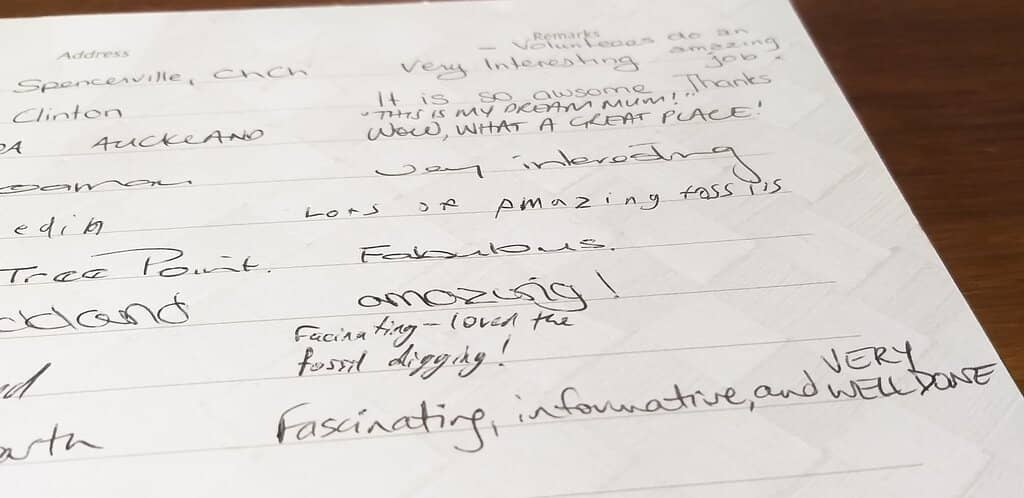 Address Remarks
Spencerville, ChCh Very Interesting - Volunteeas do an amazing job.
Clinton It is so awsome Thanks
"THIS IS MY DREAM MUM!"
AUCKLAND WOW, WHAT A GREAT PLACE!
Very interesting
edin LOTS OF AMAZING fossils
Tree Point. Fabulous.
ckland amazing!
Facinating - loved the
fossil digging!
Fascinating, informative, and VERY WELL DONE
arth